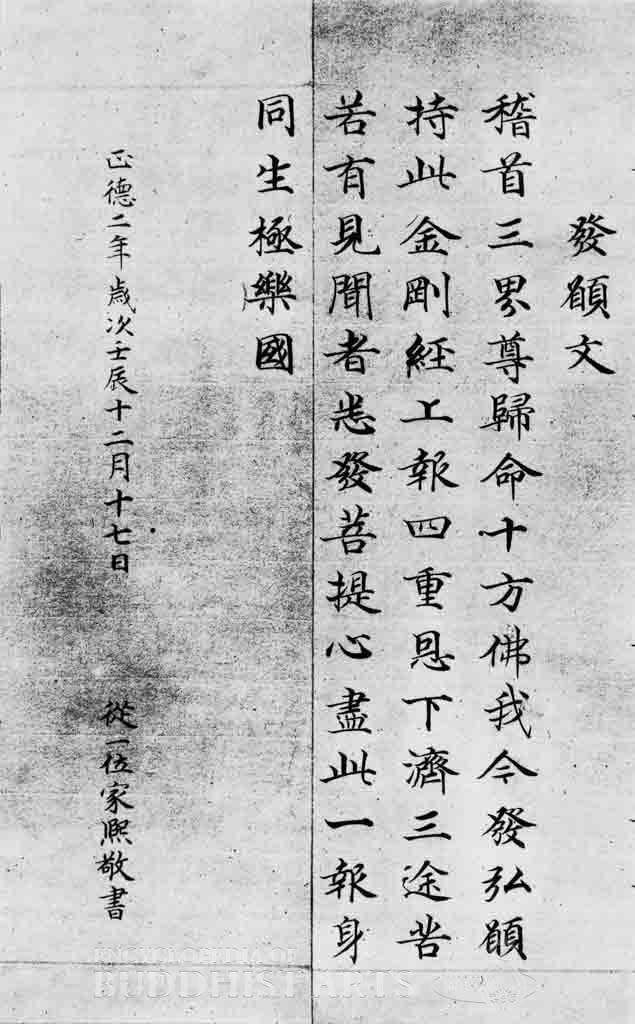 發願文
稽首三界尊歸命十方佛我今發弘願
持此金剛經上報四重恩下濟三途苦
若有見聞者悉發菩提心盡此一報身
同生極樂國
正德二年歳次壬辰十二月十七日
從一位家熈敬書
ENCYCLOPEDIA OF
BUDDHIST ARTS